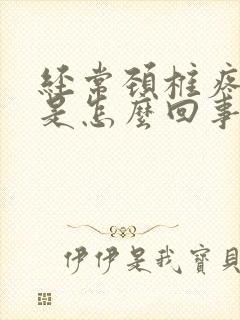 经常颈椎疼
是怎麼回事
伊伊是我寶貝